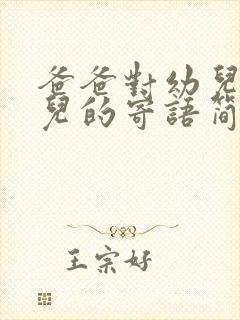 爸爸對幼兒
兒的寄語簡
王宗好